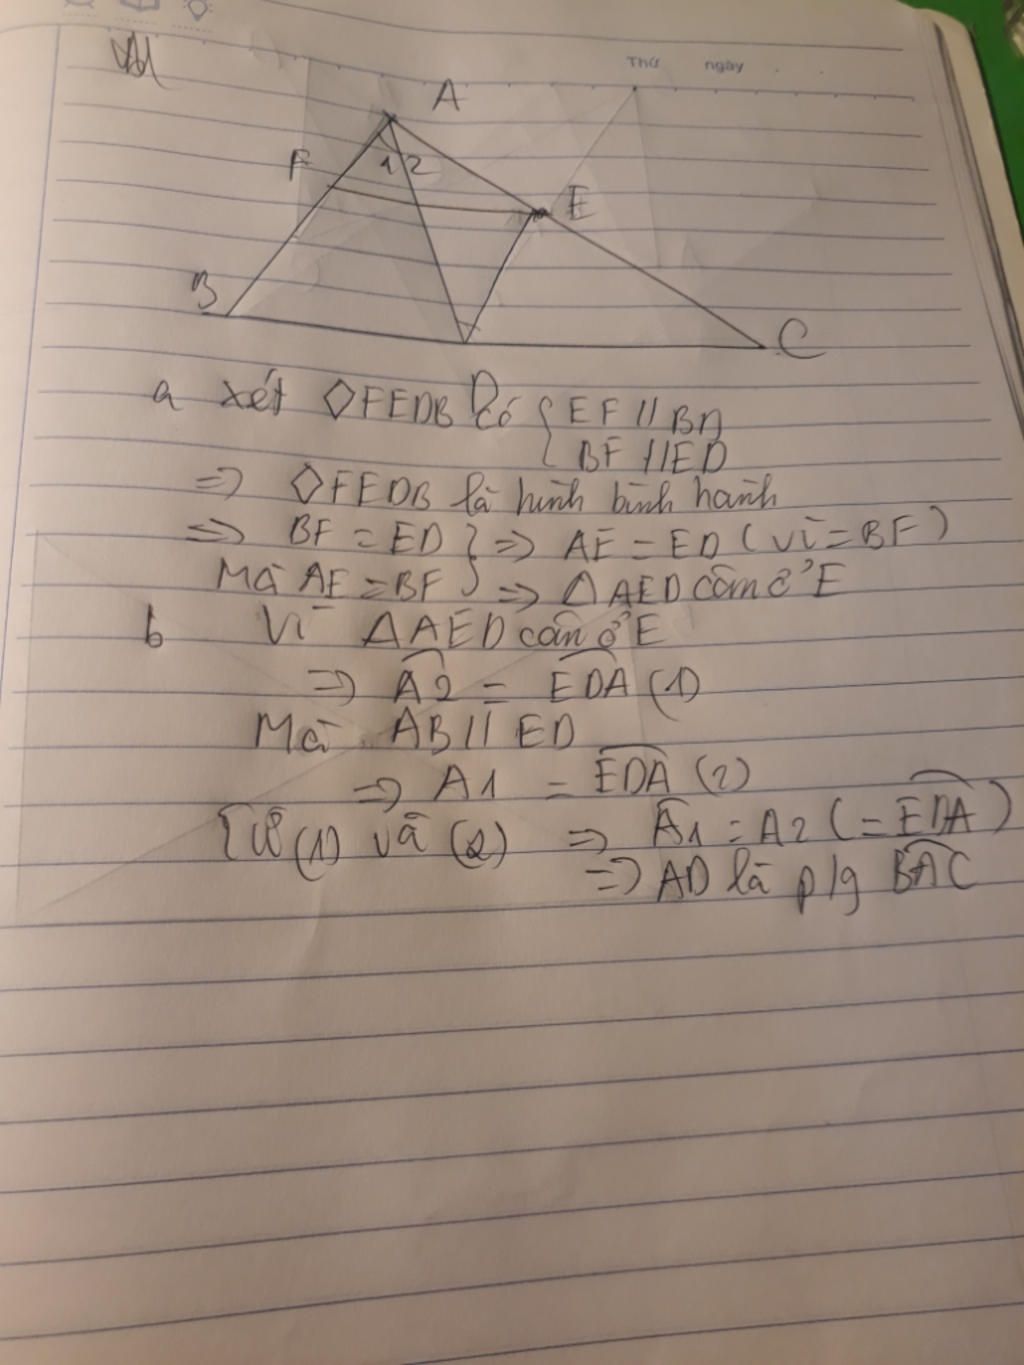 Thứ ngày
A
F
1 2
E
B
C
D
a xét ◇FEDB có { EF // BD
BF // ED
=> ◇FEDB là hình bình hành
=> BF = ED } => AE = ED (vì = BF)
Mà AE = BF => △AED cân ở E
b Vì △AED cân ở E
=> A2 = EDA (1)
Mà AB // ED
=> A1 = EDA (2)
Từ (1) và (2) => A1 = A2 (= EDA)
=> AD là p/g BAC